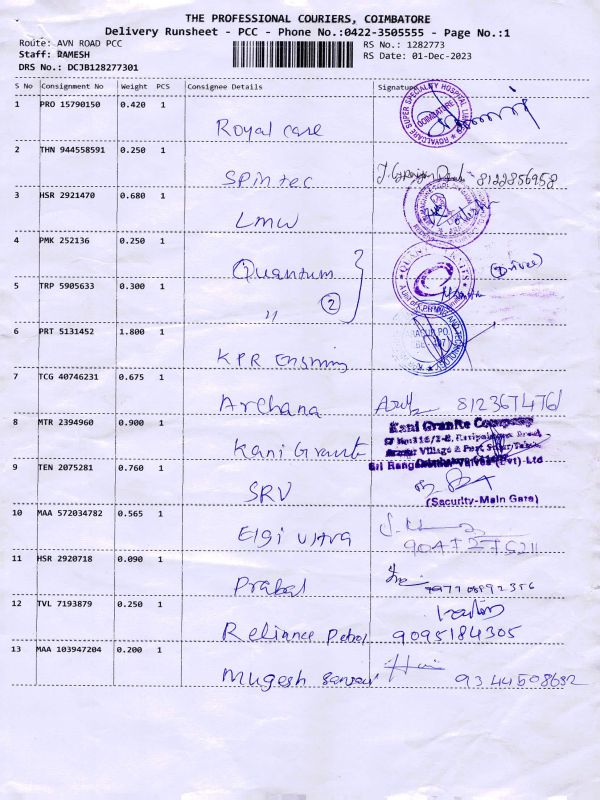 THE PROFESSIONAL COURIERS, COIMBATORE
Delivery Runsheet - PCC - Phone No.:0422-3505555 - Page No.:1
Route: AVN ROAD PCC
RS No.: 1282773
Staff: RAMESH
RS Date: 01-Dec-2023
DRS No.: DCJB128277301
S No Consignment No Weight PCS Consignee Details Signature
1 PRO 15790150 0.420 1
Royal care
2 THN 944558591 0.250 1
Spintec 8122856958
3 HSR 2921470 0.680 1
LMW
4 PMK 252136 0.250 1
Quantum
5 TRP 5905633 0.300 1
" 2
6 PRT 5131452 1.800 1
KPR
7 TCG 40746231 0.675 1
Archana
8 MTR 2394960 0.900 1
Kani Granite Company
Kani
9 TEN 2075281 0.760 1
SRV
(Security-Main Gate)
10 MAA 572034782 0.565 1
Elgi Ultra
11 HSR 2920718 0.090 1
Prabal
12 TVL 7193879 0.250 1
Reliance 9095184305
13 MAA 103947204 0.200 1
Mugesh